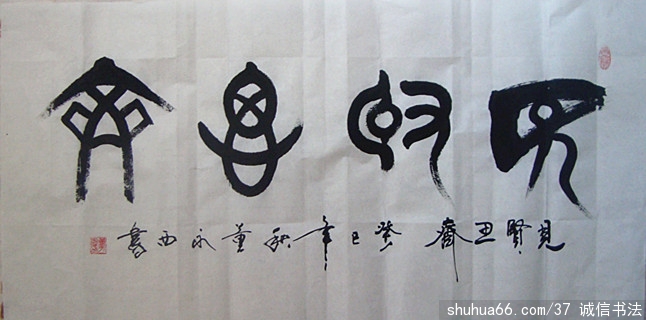 見臤思齊
見賢思齊 癸巳年秋 董永西書
shuhua66.com/37 诚信书法